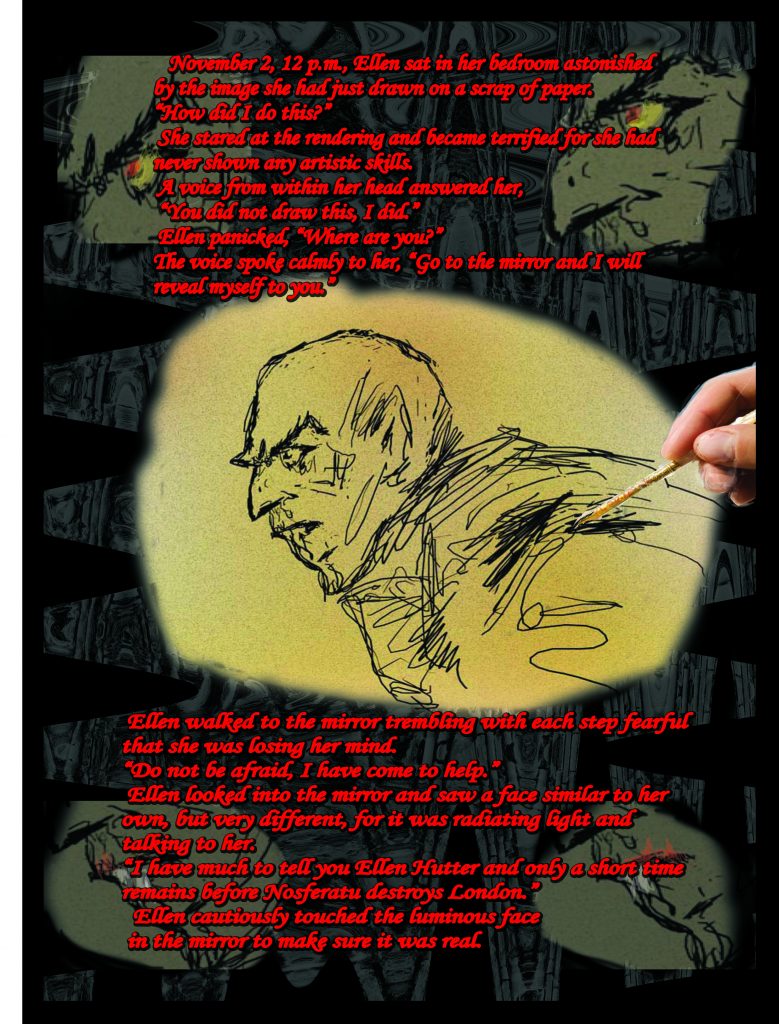 November 2, 12 p.m., Ellen sat in her bedroom astonished
by the image she had just drawn on a scrap of paper.
“How did I do this?”
She stared at the rendering and became terrified for she had
never shown any artistic skills.
A voice from within her head answered her,
“You did not draw this, I did.”
Ellen panicked, “Where are you?”
The voice spoke calmly to her, “Go to the mirror and I will
reveal myself to you.”
Ellen walked to the mirror trembling with each step fearful
that she was losing her mind.
“Do not be afraid, I have come to help.”
Ellen looked into the mirror and saw a face similar to her
own, but very different, for it was radiating light and
talking to her.
“I have much to tell you Ellen Hutter and only a short time
remains before Nosferatu destroys London.”
Ellen cautiously touched the luminous face
in the mirror to make sure it was real.